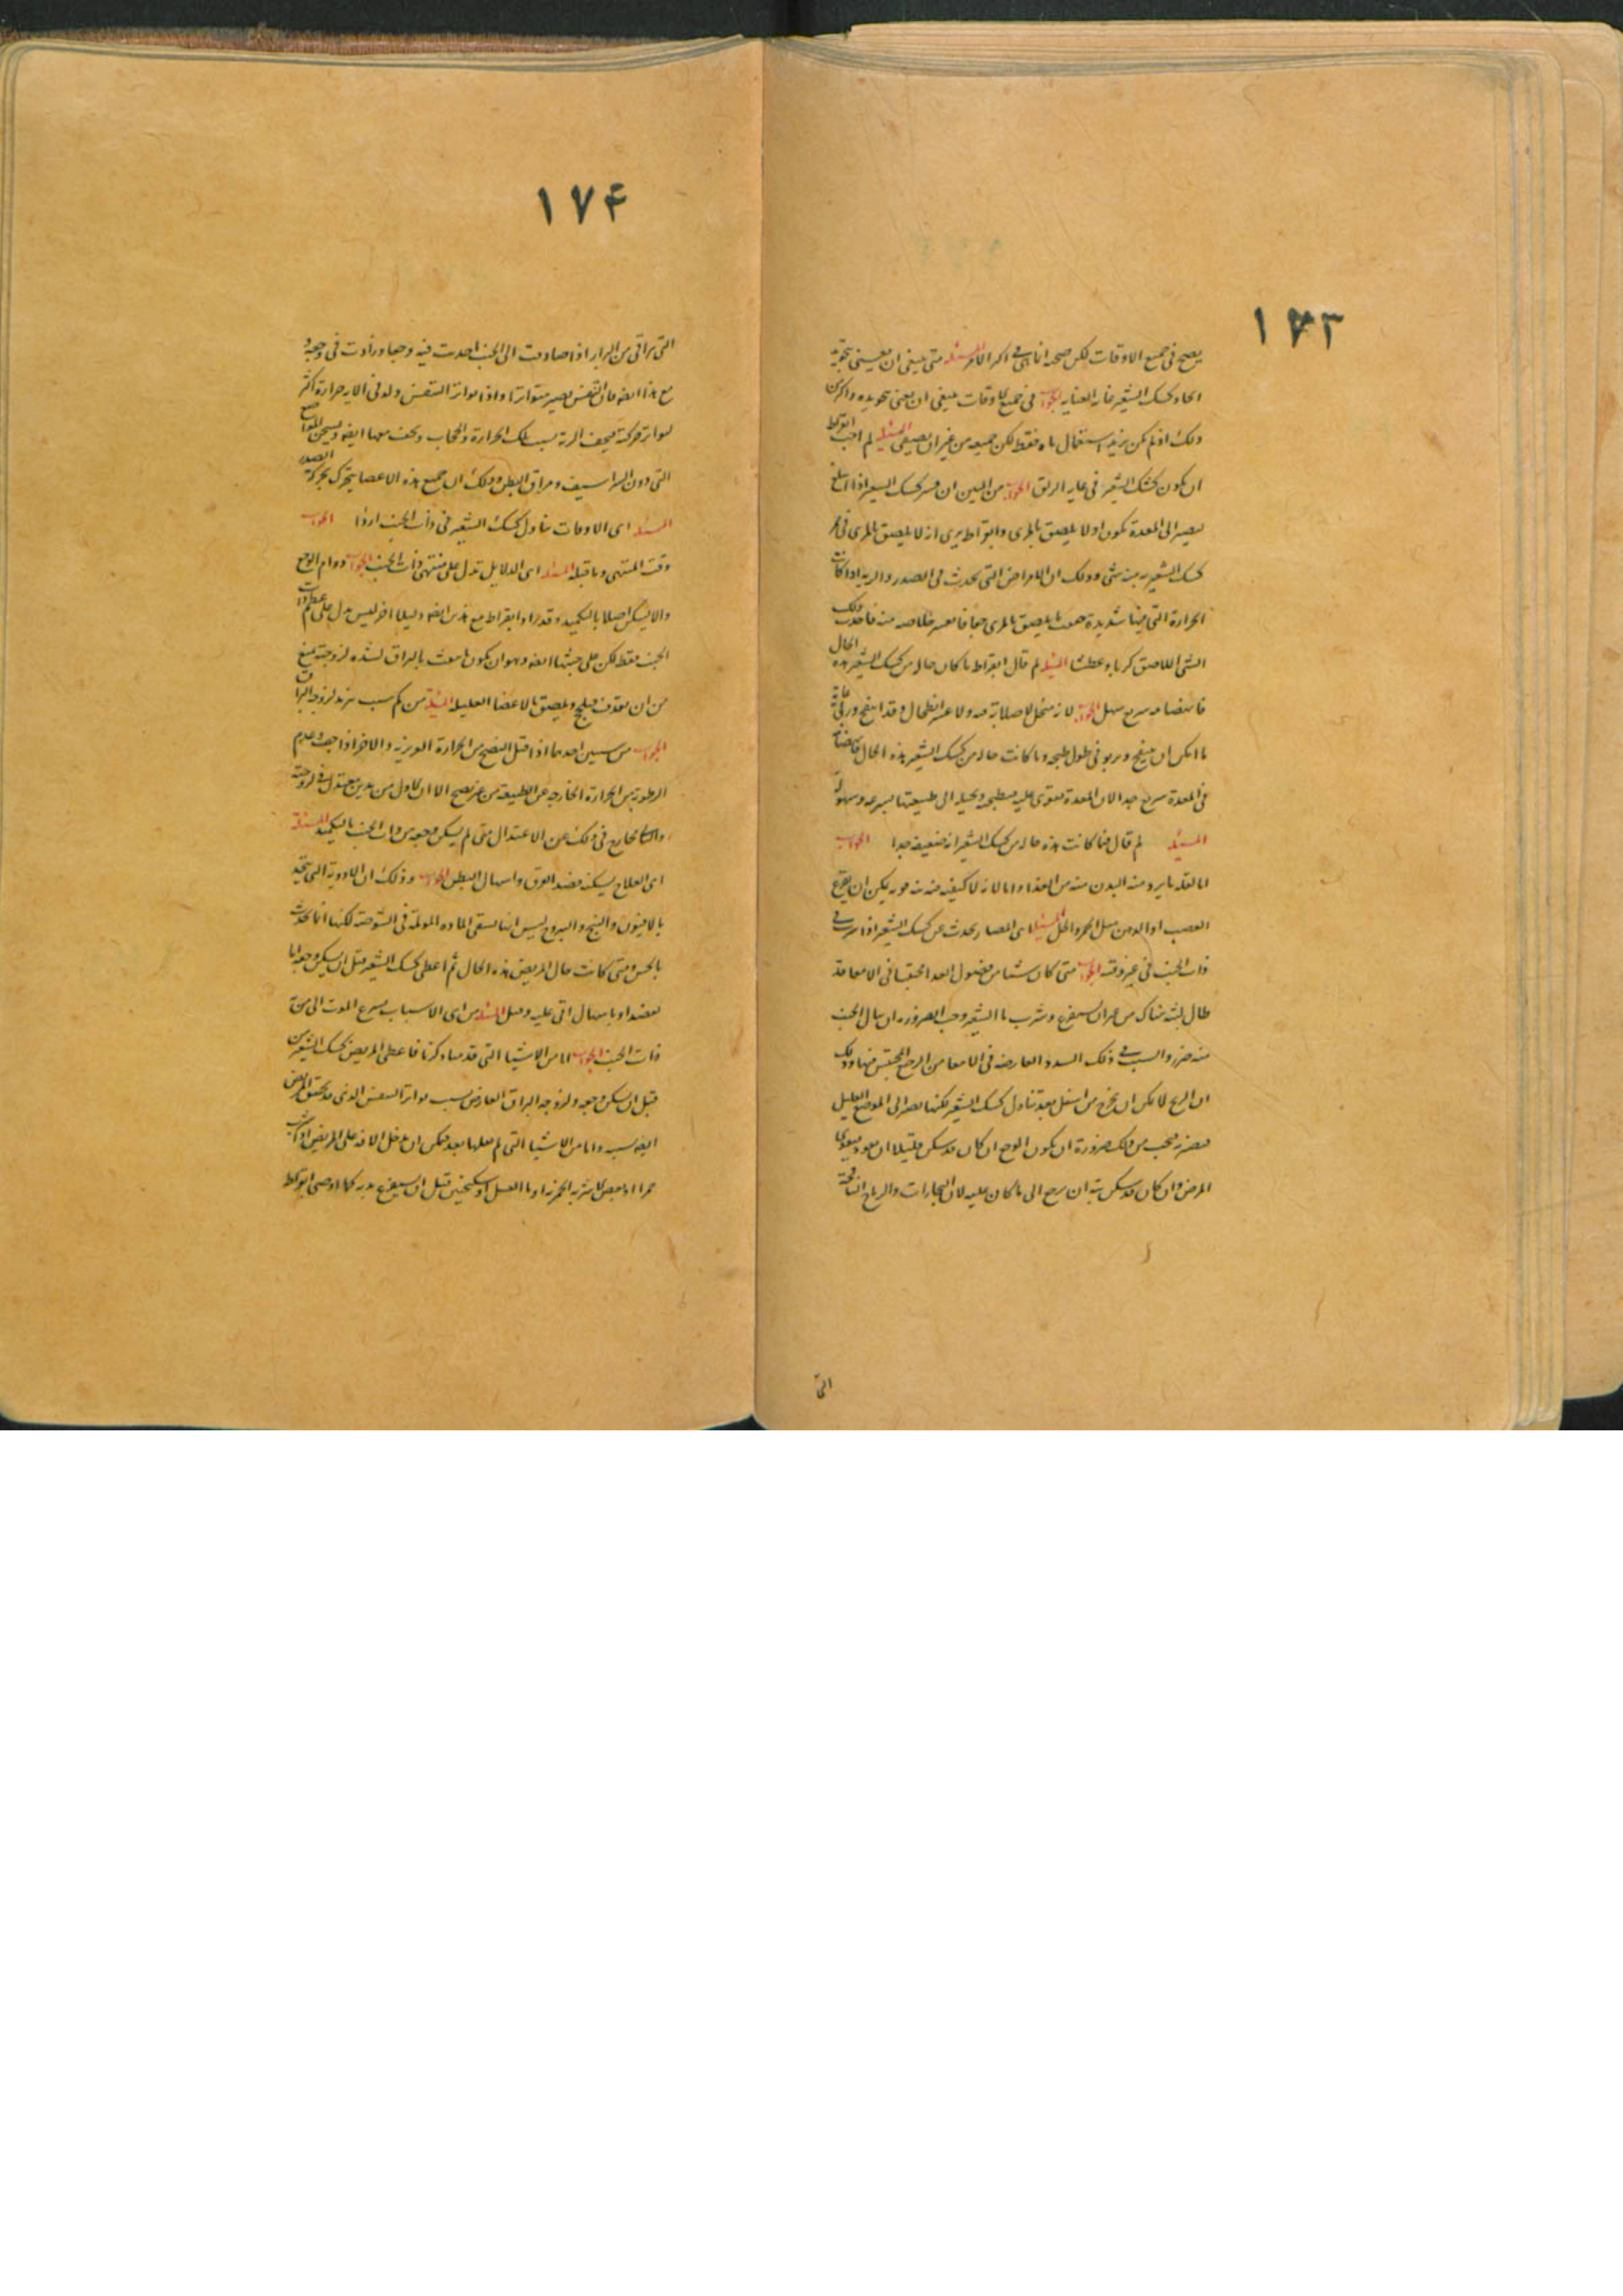 ١٧٣
يصح فى جميع الاوقات لكن صحة انا فى اكثر الامر المسئلة متى ينبغى ان يعنى بتجويد
كشك الشعير غاية العناية الجواب فى جميع الاوقات ينبغى ان يعنى بتجويده واكثر من
ذلك اذا لم يكن يريد استعمال ماءه فقط لكن جميعه من غير ان يصفى المسئلة لم احب ابقراط
ان يكون كشك الشعير فى غاية الزلق الجواب من البين ان كشك الشعير اذا ابتلع
ليصير الى المعدة يكون اولا يلصق بالمرى وابقراط يرى انه لا يلصق بالمرى فى ممر
كشك الشعير منه شى وذلك ان الامراض التى تحدث فى الصدر والرية اذا كانت
الحرارة التى فيها شديدة ما يلصق بالمرى جفافا يعسر خلاصه منه فاحدث ذلك
الشى اللاصق كربا وعطشا المسئلة لم قال ابقراط ما كان حاله من كشك الشعير هذه الحال
فانهضامه سريع سهل الجواب لانه منحل لا صلابة فيه ولا عسر انطحال وقد انتفخ وربى غاية
ما امكن ان ينتفخ ويربو فى طول طبخه وما كانت حاله من كشك الشعير هذه الحال فانهضامه
فى المعدة سريع جدا لان المعدة تقوى عليه فتطبخه وتحيله الى طبيعتها بسرعة وسهولة
المسئلة لم قال متى كانت هذه حاله من كشك الشعير انه ضعيف جدا الجواب
اما لقلة ما يرد منه البدن منه من الغذاء واما لانه لا كيفية منه قوية يمكن ان يقرع
العصب او البدن مثل الحر والخل المسئلة اى المضار يحدث عن كشك الشعير اذا شرب فى
ذات الجنب فى غير وقته الجواب متى كان شيئا من فضول الغذا محتبسا فى الامعا قد
طال لبثه هناك من غير ان يستفرغ وشرب ماء الشعير وجب ضرورة ان ينال الجنب
منه ضرر والسبب فى ذلك السدد العارضة فى الامعا من الرجيع المحتبس فيها وذلك
ان الريح لا يمكن ان تخرج من اسفل بعد تناول كشك الشعير لكنها تصير الى الموضع العليل
فتضر به فيجب من ذلك ضرورة ان يكون الوجع ان كان قد سكن قليلا ان يعود ويقوى
المرض وان كان قد سكن بتة ان يرجع الى ما كان عليه لان البخارات والرياح النافخة
التى
١٧۴
التى تراقى من المرار اذا صارت الى الجنب احدثت فيه وجعا وزادت فى وجعه و
مع هذا ايضا فان التنفس يصير متواترا واذا تواتر التنفس ولد فى الرية حرارة اكثر
لتواتر حركته فيجفف الرية بسبب تلك الحرارة والحجاب ويجف معها ايضا ويسخن المواضع
التى دون الشراسيف ومراق البطن وذلك ان جميع هذه الاعضا يتحرك بحركة الصدر
المسئلة اى الاوقات تناول كشك الشعير فى ذات الجنب اردا الجواب
وقت المنتهى وما قبله المسئلة اى الدلايل تدل على منتهى ذات الجنب الجواب دوام الوجع
والا يسكن اصلا بالتكميد وقد زاد ابقراط مع هذين ايضا دليلا اخر ليس يدل على عظم ذات
الجنب فقط لكن على خبثها ايضا وهو ان يكون ما ينفث بالبزاق لشدة لزوجته يمنع
من ان يقذف فيلحج ويلصق بالاعضا العليلة المسئلة من كم سبب تزيد لزوجة البزاق
الجواب من سببين احدهما اذا قبل النضج من الحرارة الغريزية والاخر اذا جف وعدم
الرطوبة من الحرارة الخارجة عن الطبيعة من غير نضج الا ان الاول من هذين معتدل فى لزوجته
والثانى خارج فى ذلك عن الاعتدال متى لم يسكن وجعه من ذات الجنب بالتكميد المسئلة
اى العلاج يسكنه فصد العرق واسهال البطن الجواب وذلك ان الادوية التى تتخذ
بالافيون والبنج واليبروح ليس انها تشفى المادة المولمة فى الشوصة لكنها انما تحدث
بالحس ومتى كانت حال المريض هذه الحال ثم اعطى كشك الشعير قبل ان يسكن وجعه اما
بفصد او باسهال اتى عليه وقتل المسئلة من اى الاسباب يسرع الموت الى من
ذات الجنب الجواب اما من الاشيا التى قد ذكرنا فاعطى المريض كشك الشعير من
قبل ان يسكن وجعه ولزوجة البزاق العارض بسبب تواتر التنفس الذى قد يختنق المريض
ايضا بسببه واما من الاشيا التى لم يعلمها بعد فيمكن ان يدخل الافة على المريض اذا شرب
خمرا او بعض الاشربة الخمرية او ماء العسل او سكنجبين قبل ان يستفرغ بدنه كما اوصى ابقراط